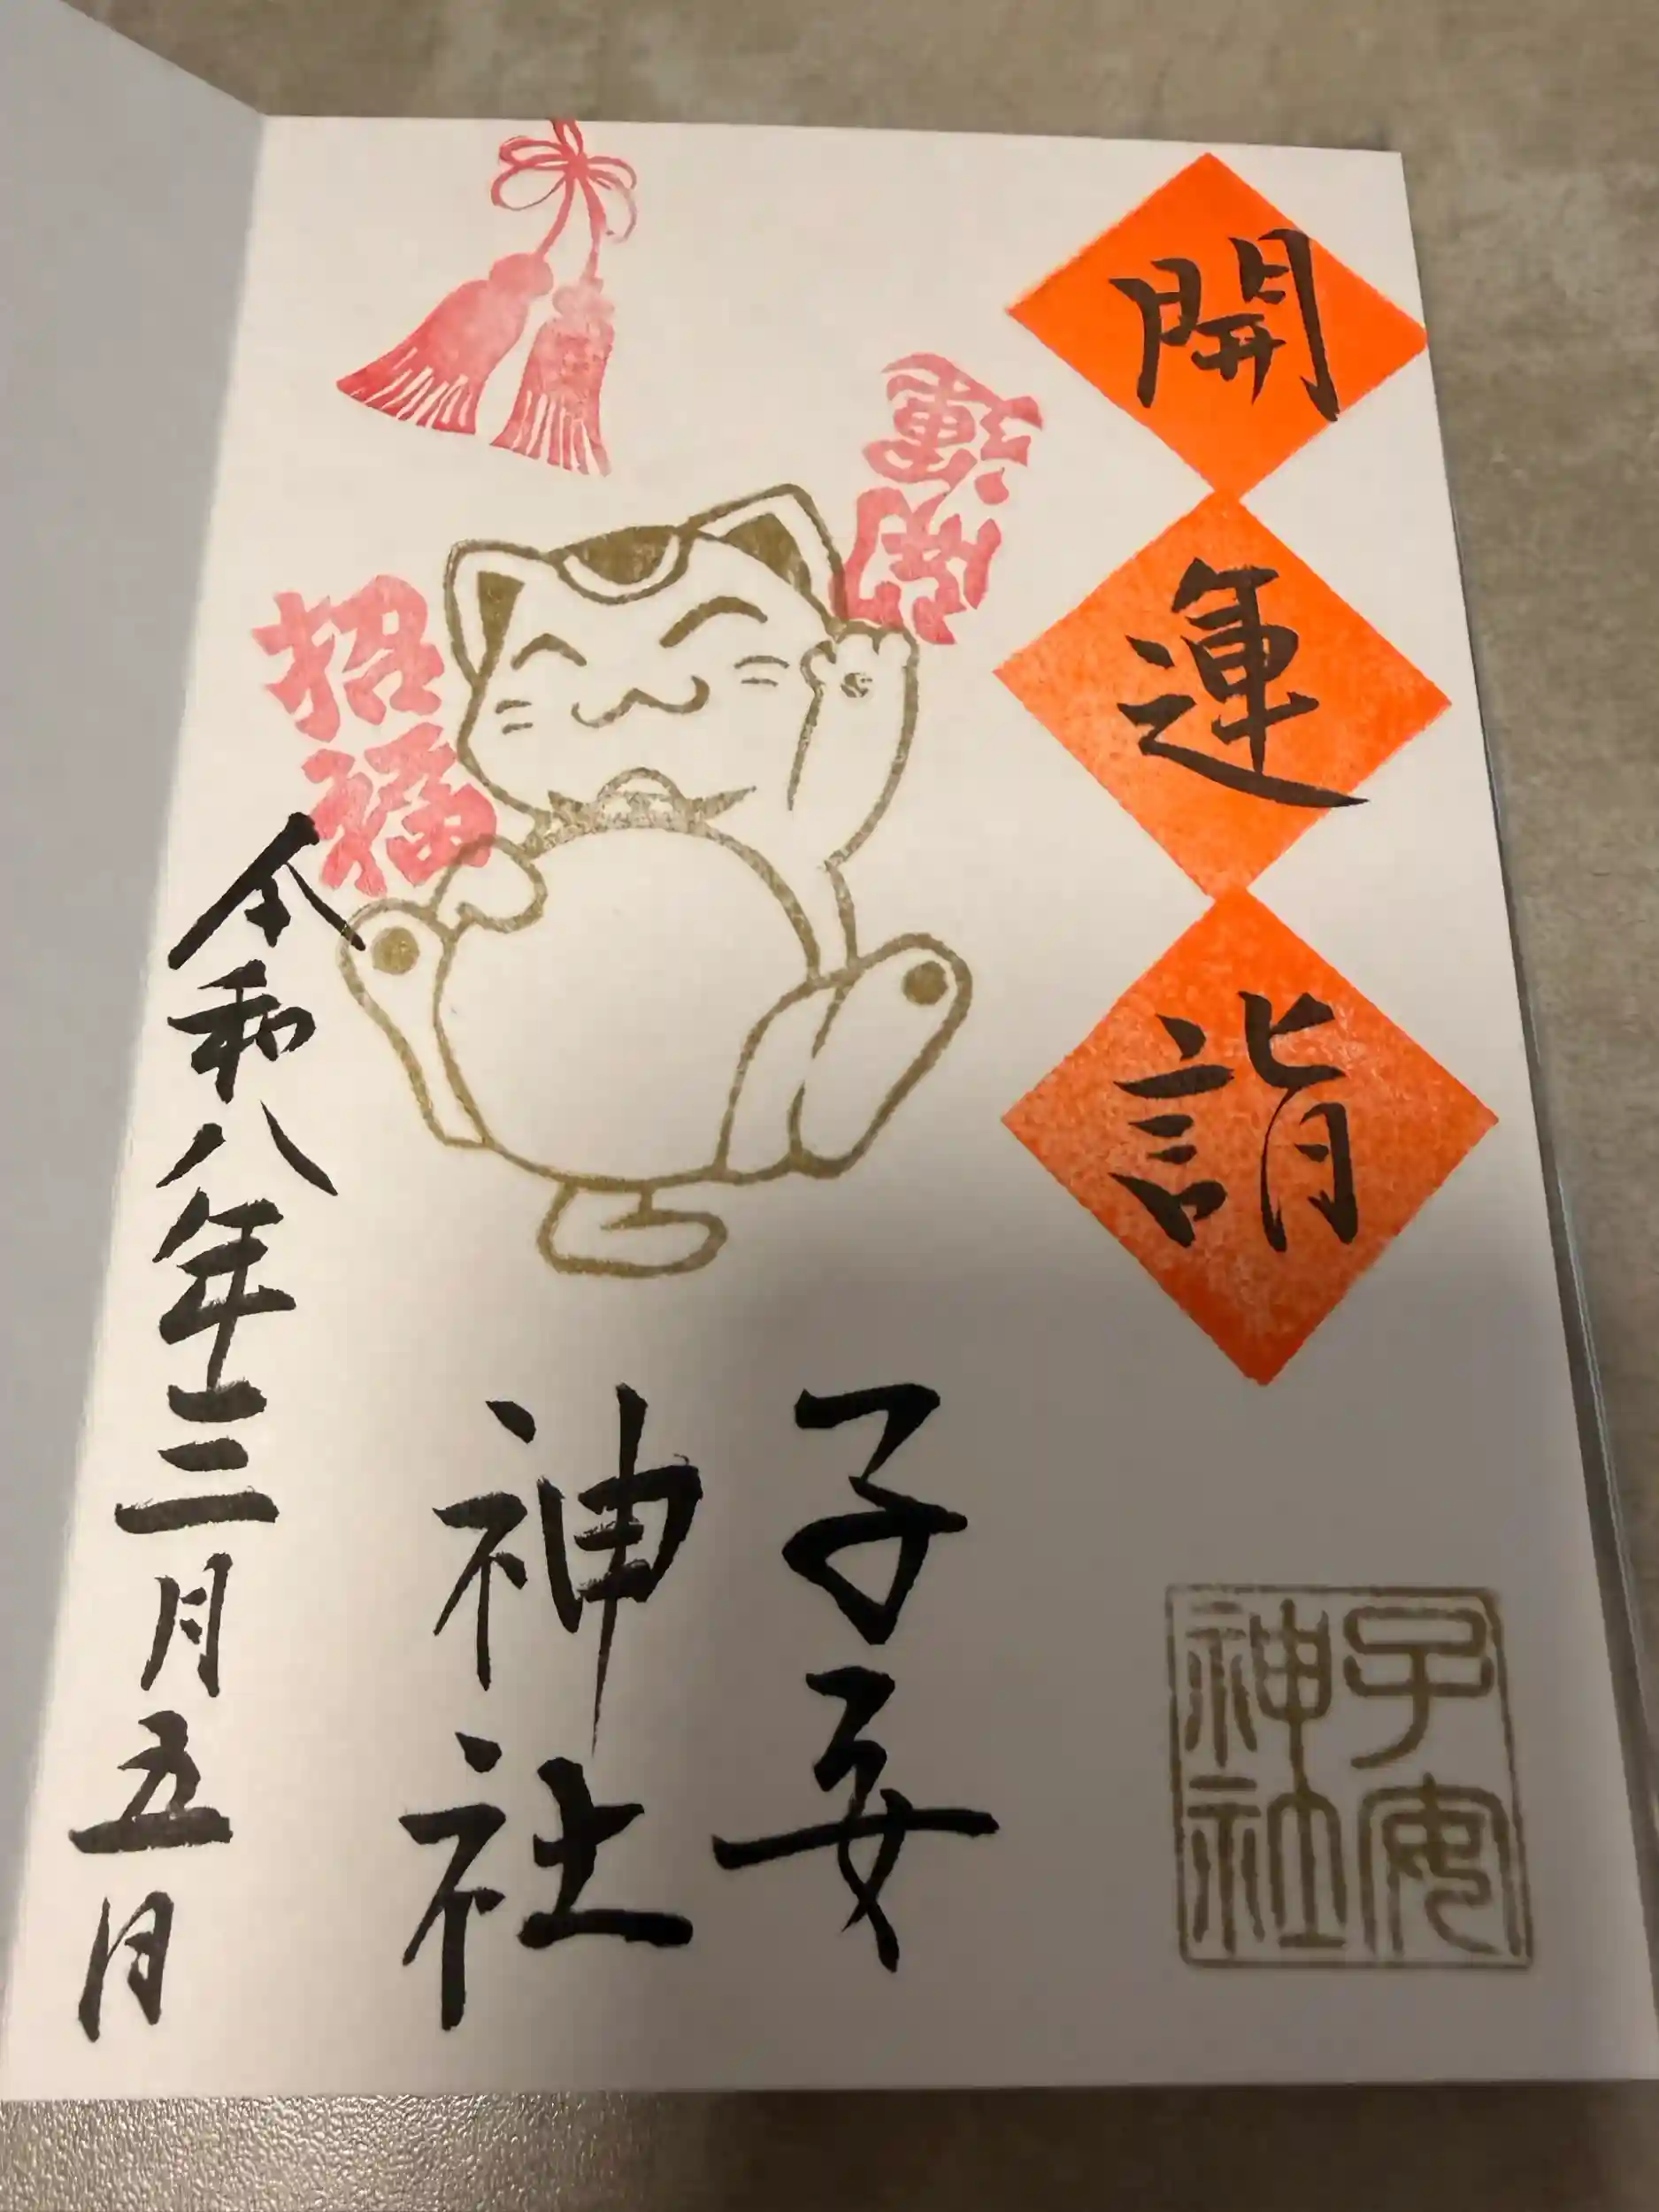 開運詣
開運
招福
子安
神社
子安
神社
令和八年三月五日